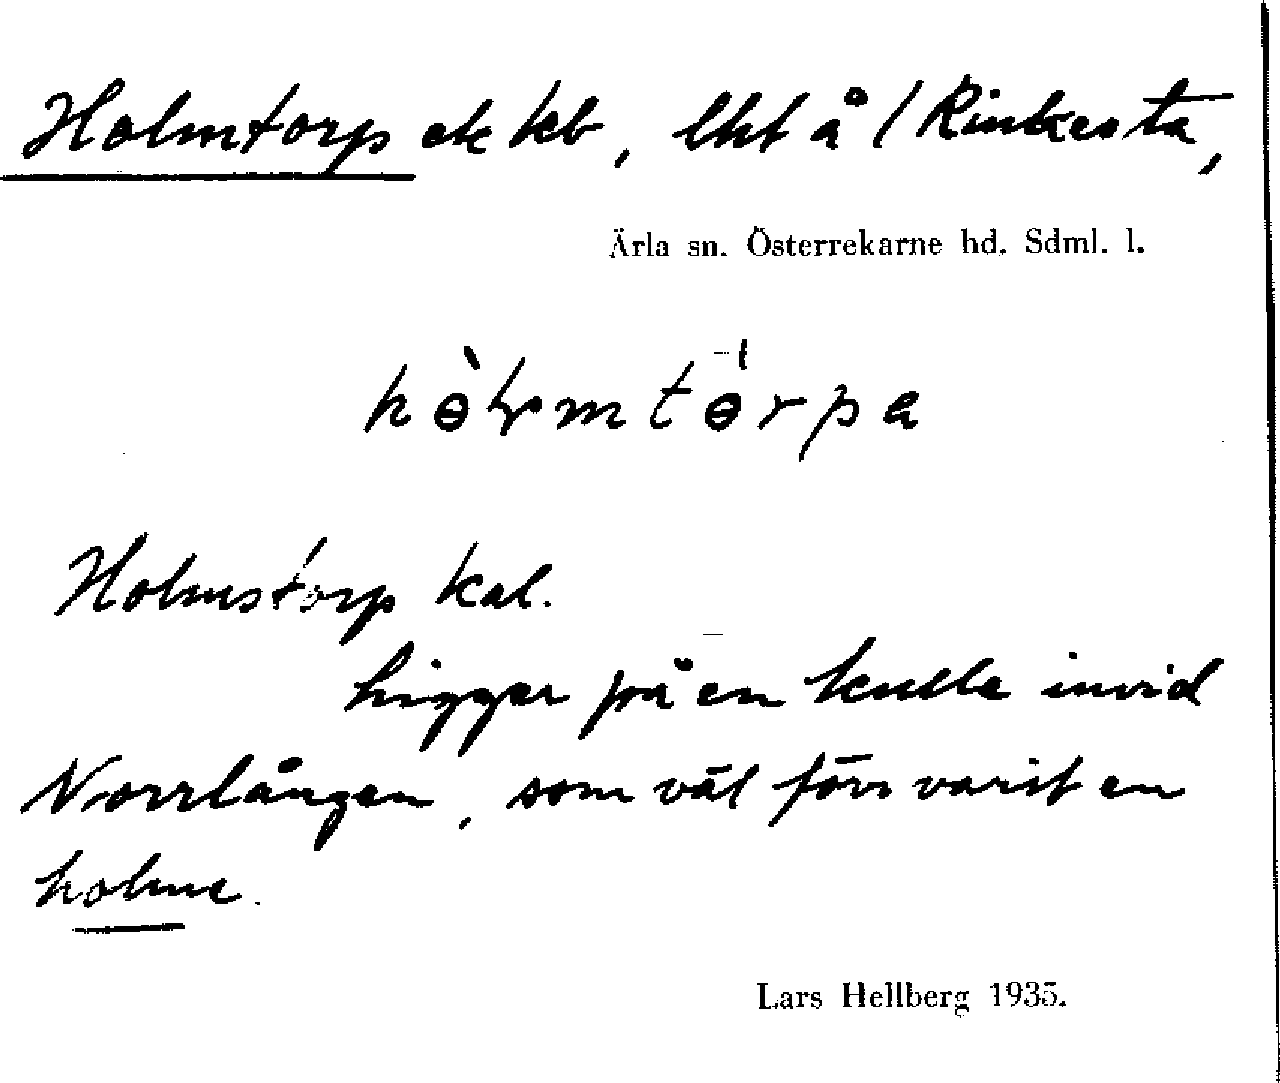 Holmtorp ek kb, lht å / Rinkesta,
Ärla sn. Österrekarne hd. Sdml. l.
Holmstorp kal.
Ligger på en kulle invid
Norrlången, som väl förr varit en
holme.
Lars Hellberg 1935.